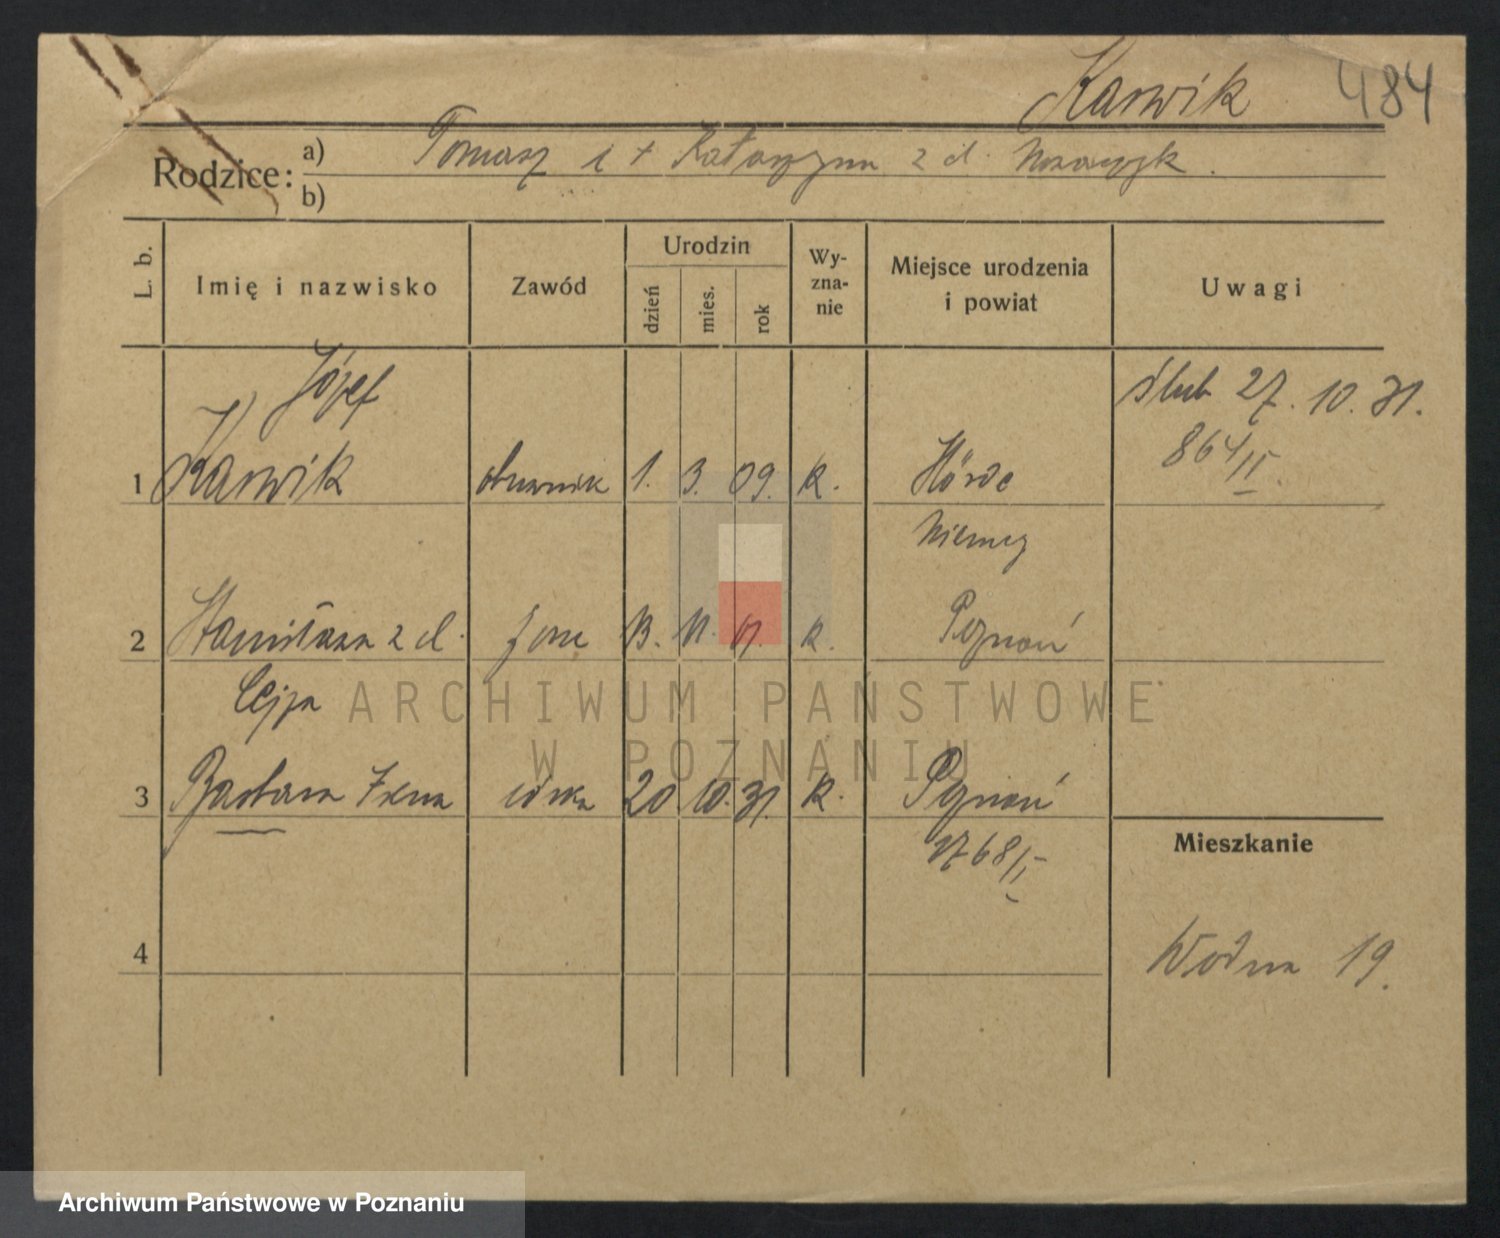 Karwik 484
Rodzice: a) Tomasz i + Katarzyna z d.
b)
L. b. Imię i nazwisko Zawód Urodzin dzień mies. rok Wy-zna-nie Miejsce urodzenia i powiat Uwagi
Józef ślub 27. 10. 31.
1 Karwik 1. 3. 09. k. Hörde 864/II
Niemcy
2 Stanisława z d. żona 13. 11. k. Poznań
Cejza
3 Barbara Irena córka 20 10. 31. k. Poznań
1768/I
Mieszkanie
4 Wodna 19.
ARCHIWUM PAŃSTWOWE
W POZNANIU
Archiwum Państwowe w Poznaniu